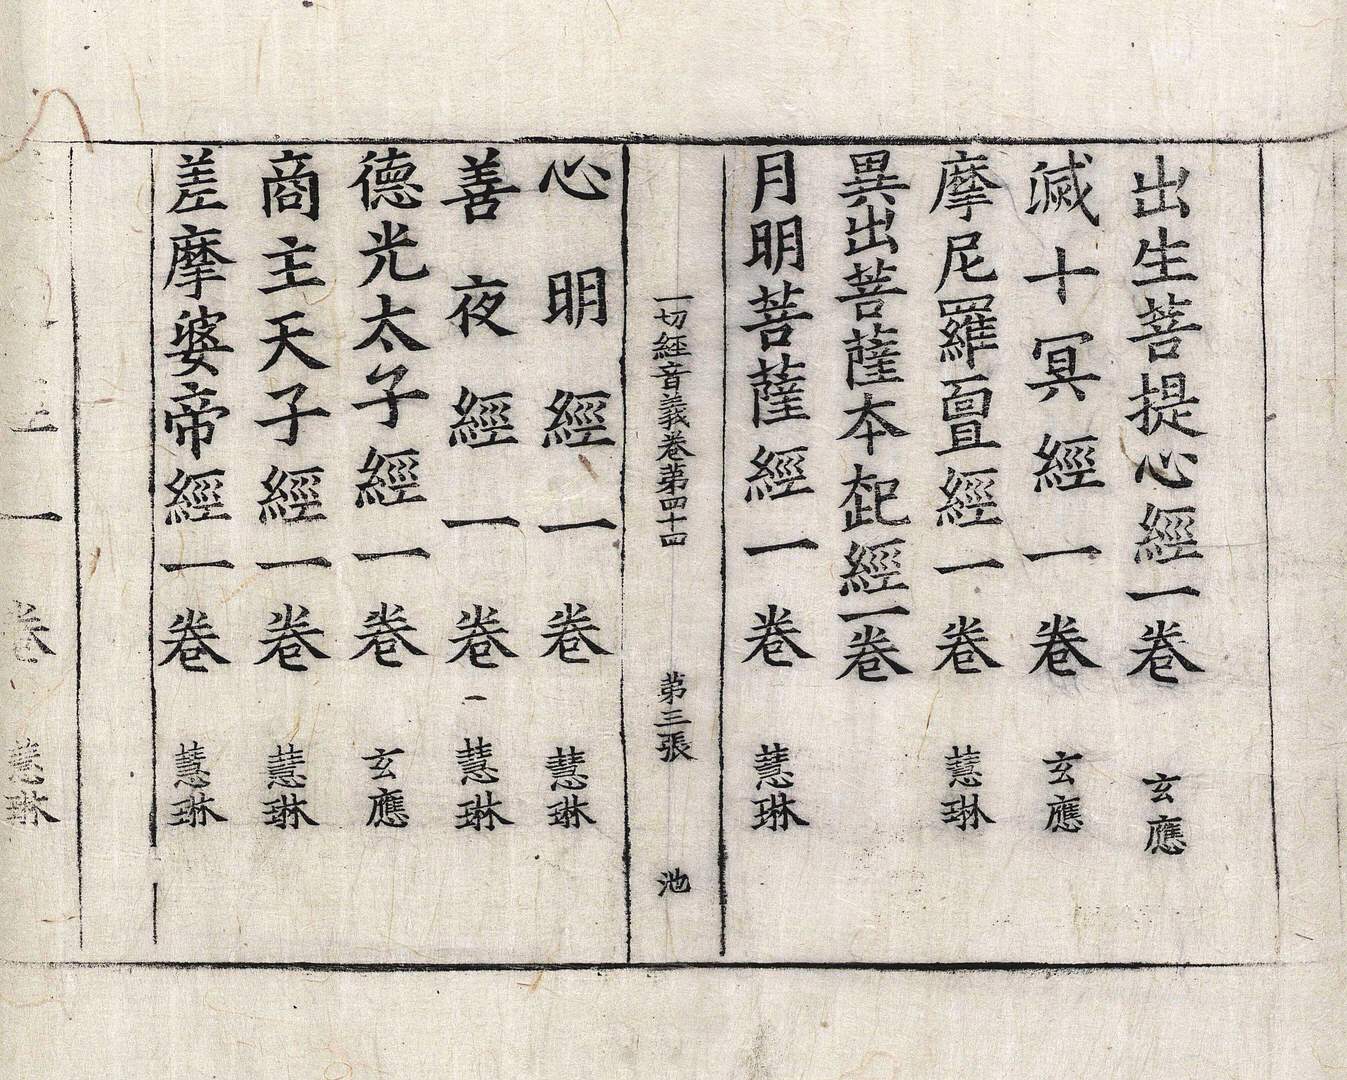 出生菩提心經一卷 玄應
滅十冥經一卷 玄應
摩尼羅亶經一卷 慧琳
異出菩薩本起經一卷
月明菩薩經一卷 慧琳
一切經音義卷第四十四 第三張 池
心明經一卷 慧琳
善夜經一卷 一慧琳
德光太子經一卷 玄應
商主天子經一卷 慧琳
差摩婆帝經一卷 慧琳
一卷 慧琳